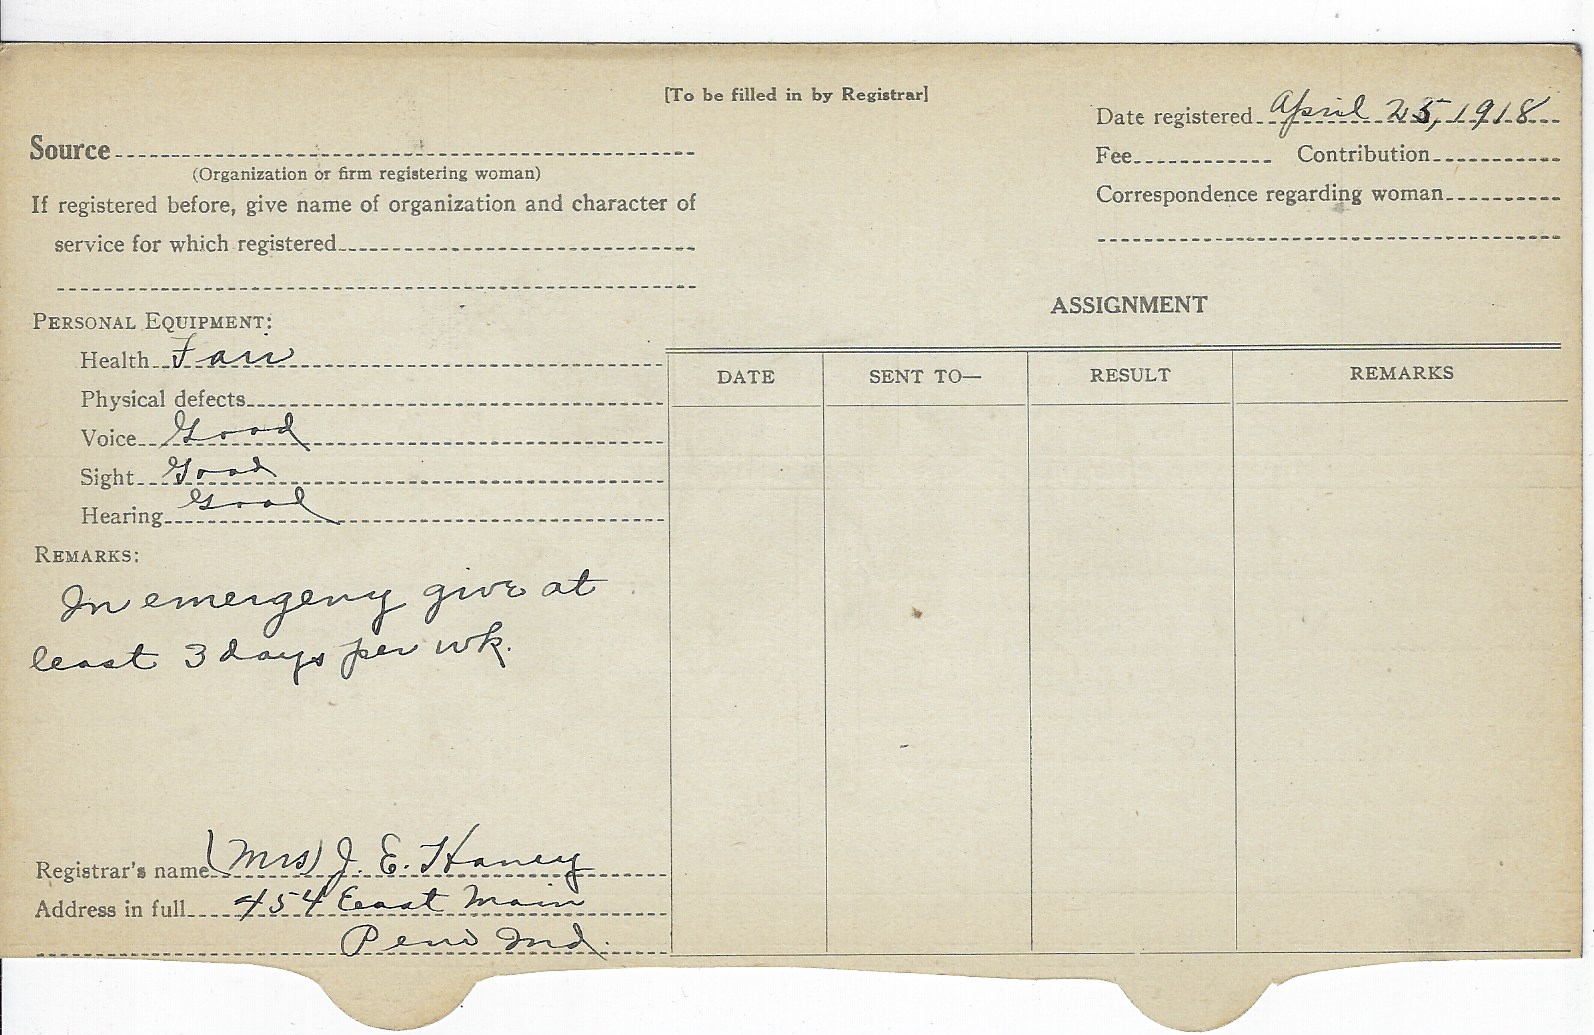 [To be filled in by Registrar]
Date registered April 25, 1918
Source
(Organization or firm registering woman)
Fee Contribution
If registered before, give name of organization and character of
service for which registered
Correspondence regarding woman
ASSIGNMENT
PERSONAL EQUIPMENT:
Health Fair
Physical defects
Voice Good
Sight Good
Hearing Good
DATE SENT TO— RESULT REMARKS
REMARKS:
In emergency give at
least 3 days per wk.
Registrar's name (Mrs) J. E. Haney
Address in full 454 East Main
Peru Ind.